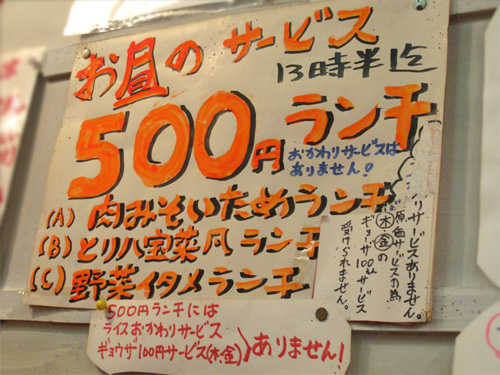 お昼のサービス
13時半迄
500円ランチ
おかわりサービスは
ありません!
(A) 肉みそいためランチ
(B) とり八宝菜風ランチ
(C) 野菜イタメランチ
リサービスありません。
原価サービスの為
木 金の
ギョーザ100円サービス
受けられません。
500円ランチには
ライスおかわりサービス
ギョウザ100円サービス(木、金)
ありません!